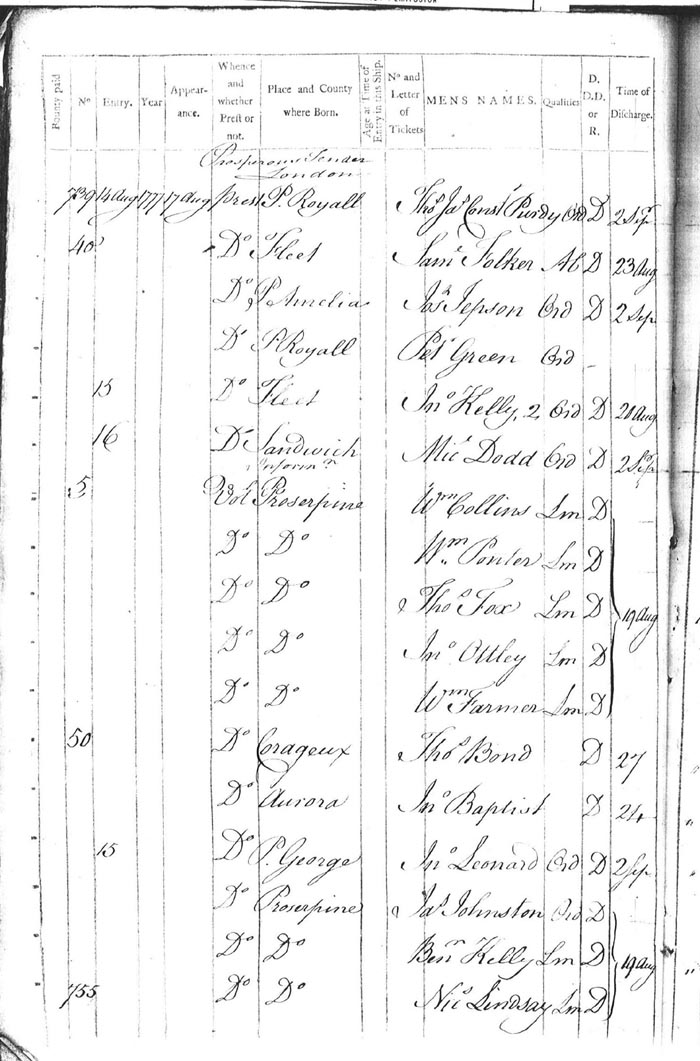 Bounty paid Nº Entry. Year Appearance. Whence and whether Prest or not. Place and County where Born. Age at Time of Entry in this Ship. Nº and Letter of Tickets MENS NAMES. Qualities D. D.D. or R. Time of Discharge.
Prosperous Tender
London
739 14 Aug 1771 17 Aug prest P. Royall Thoˢ Jaˢ Constᵗ Purdy Ord D 2 Sep
40 Dº Fleet Samˡ Folker Ab D 23 Aug
Dº P. Amelia Joˢ Jepson Ord D 2 Sep
Dº P. Royall Petʳ Green Ord
15 Dº Fleet Jnº Kelly, 2 Ord D 20 Aug
16 Dº Sandwich Micˡ Dodd Ord D 2 Sep
5 Vol Proserpine Wᵐ Collins Lm D
Dº Dº Wᵐ Ponter Lm D
Dº Dº Thoˢ Fox Lm D 19 Aug
Dº Dº Jnº Ottley Lm D
Dº Dº Wᵐ Farmer Lm D
50 Dº Corageux Thoˢ Bond D 27
Dº Aurora Jnº Baptist D 24
15 Dº P. George Jnº Leonard Ord D 2 Sep
Dº Proserpine Jaˢ Johnston Ord D
Dº Dº Benⁿ Kelly Lm D 19 Aug
755 Dº Dº Nicˢ Lindsay Lm D